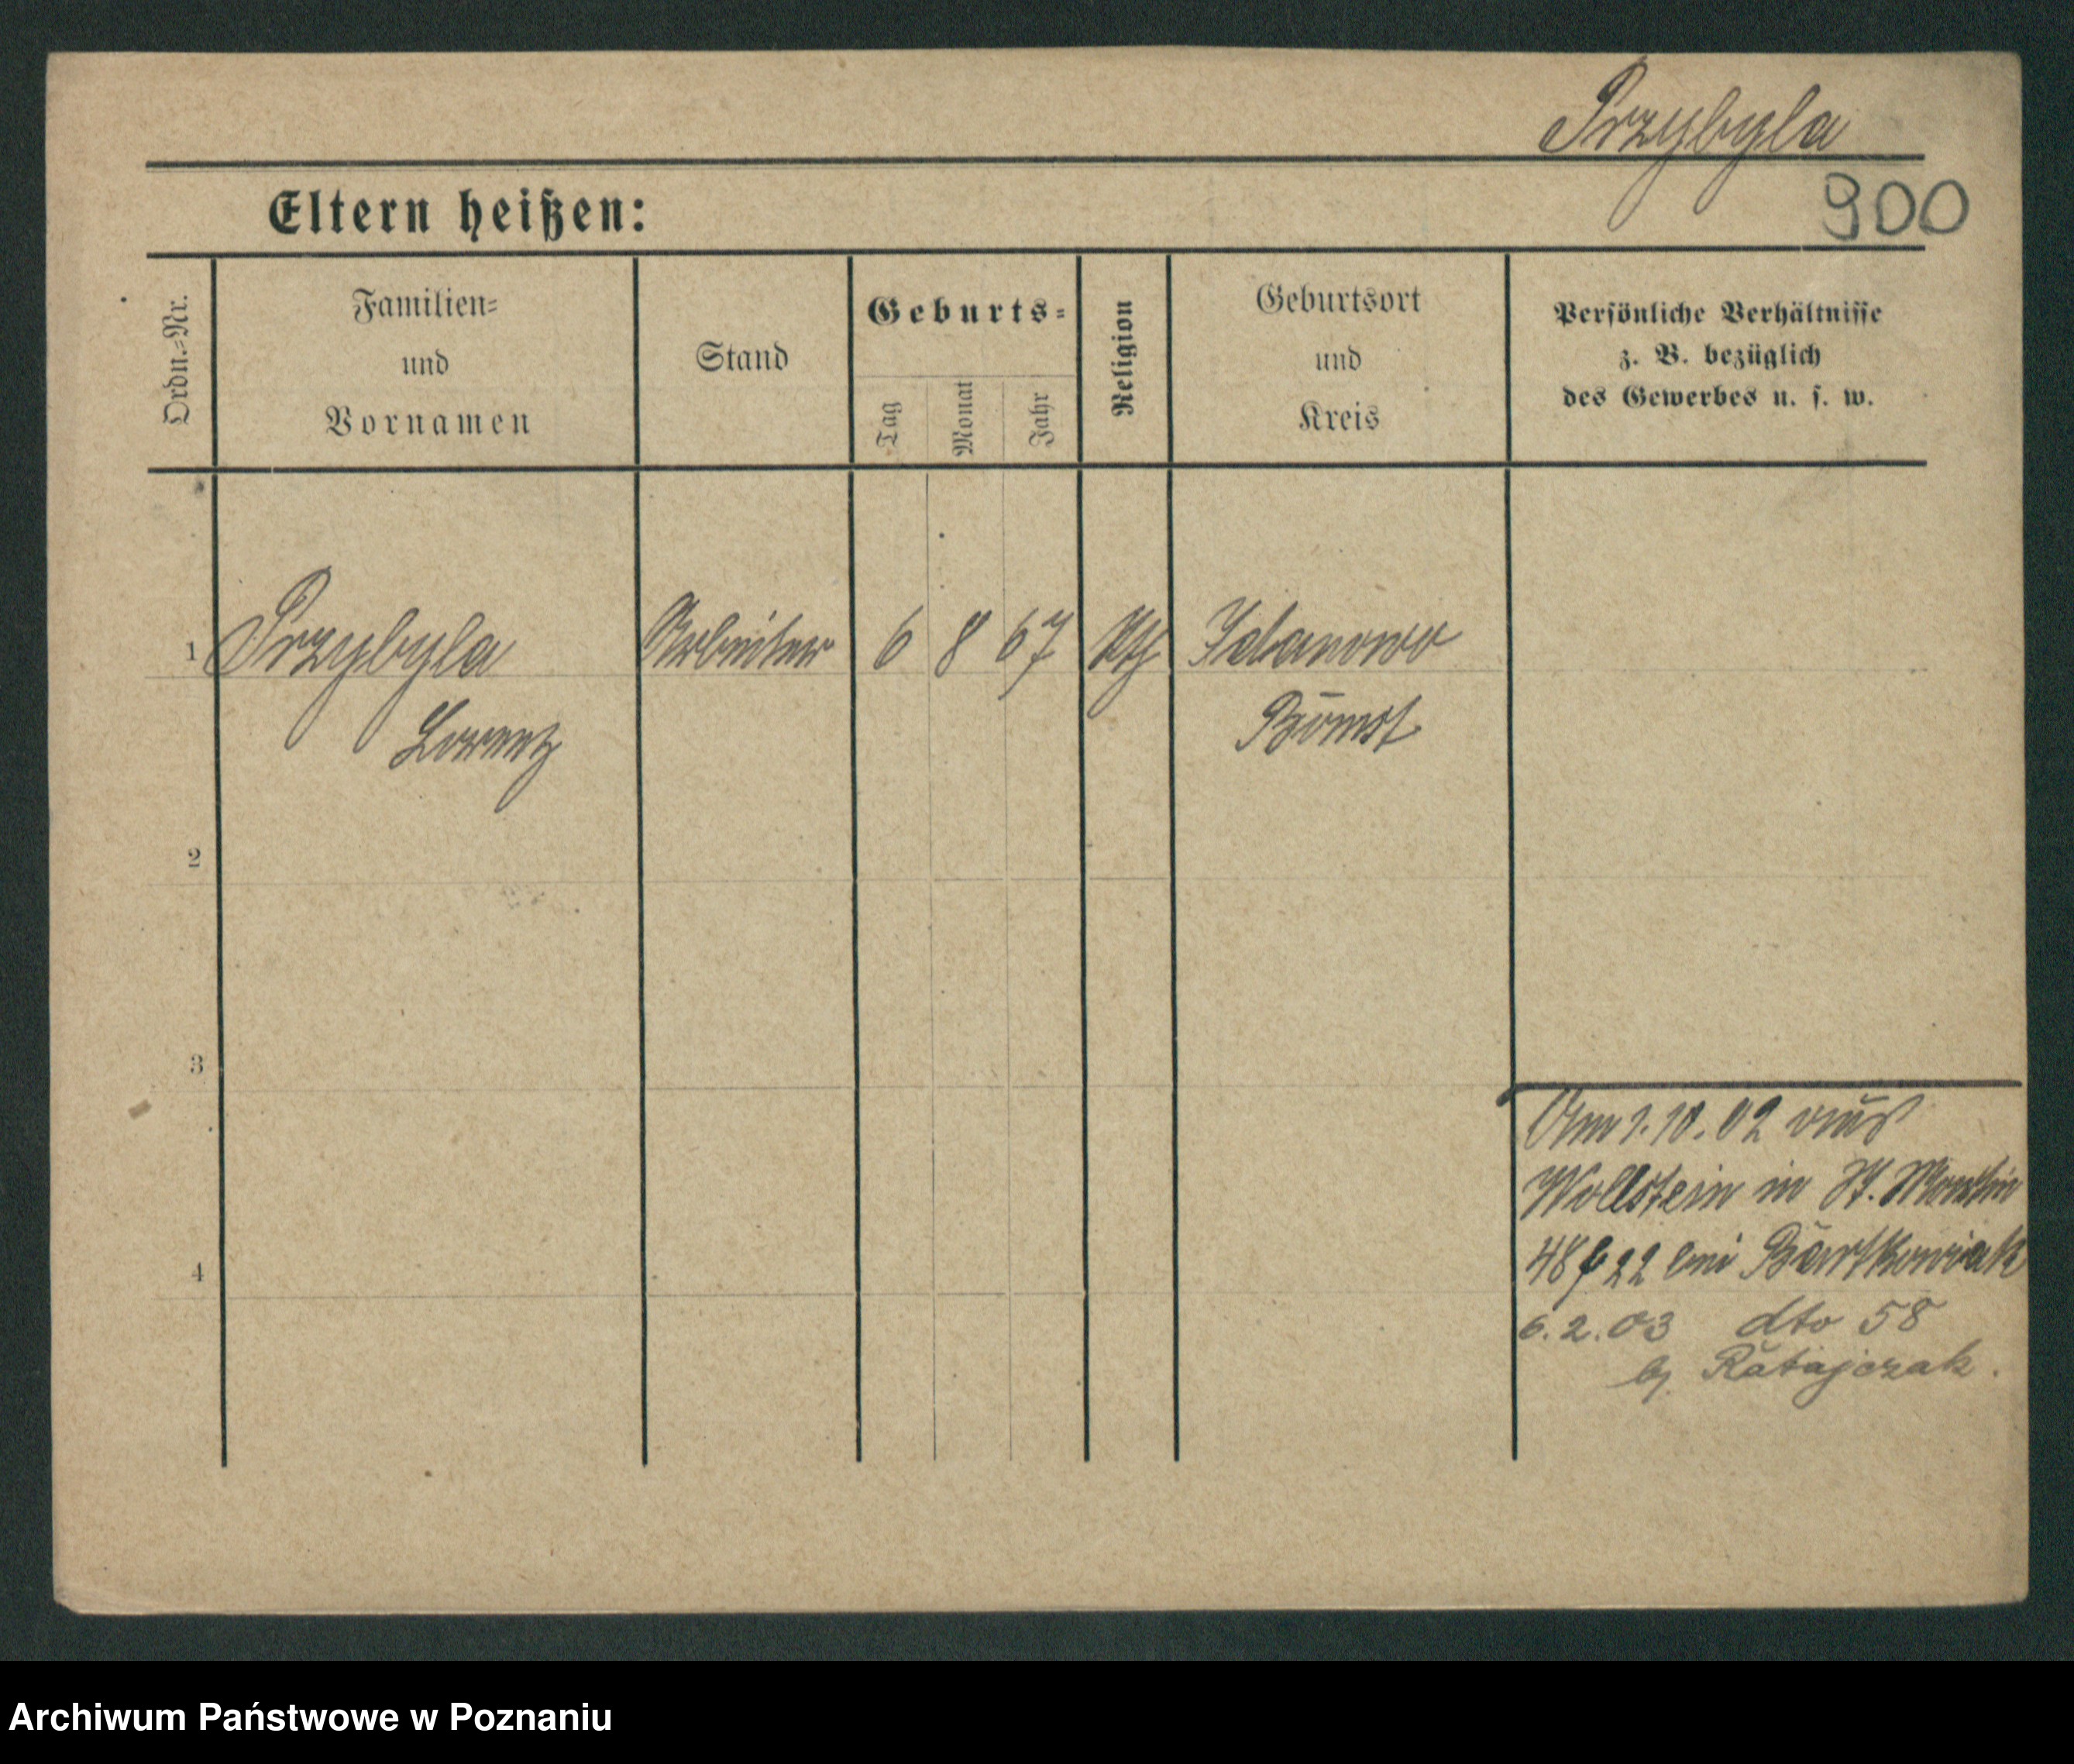 Przybyla
Eltern heißen:
900
Ordn.-Nr.
Familien-
und
Vornamen
Stand
Geburts-
Tag
Monat
Jahr
Religion
Geburtsort
und
Kreis
Persönliche Verhältnisse
z. B. bezüglich
des Gewerbes u. s. w.
1 Przybyla Arbeiter 6 8 67 kth Zdanowo
Lorenz Bomst
2
3
4
Am 1.10.02 aus
Wollstein in St. Martin
48 22 bei Bartkowiak
6.2.03 dto 58
bj. Ratajczak.
Archiwum Państwowe w Poznaniu